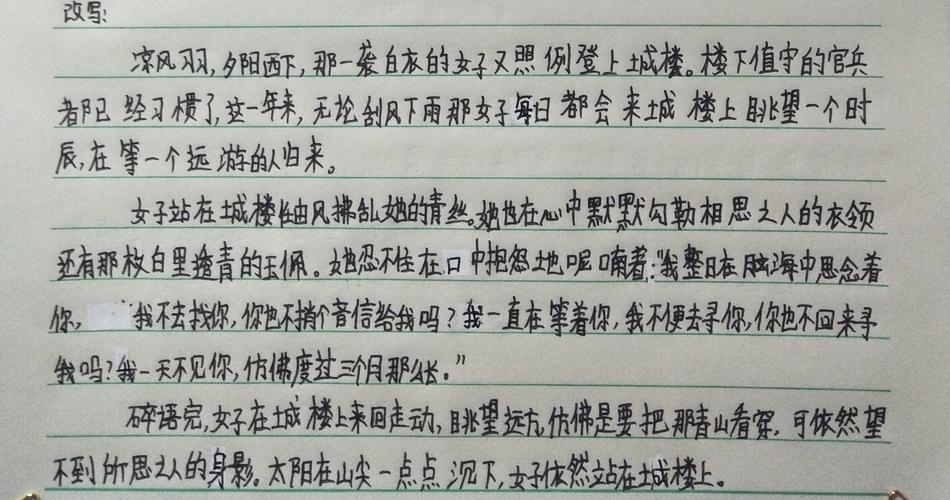 改写:
凉风习习,夕阳西下,那一袭白衣的女子又照例登上城楼。楼下值守的官兵
都已经习惯了,这一年来,无论刮风下雨那女子每日都会来城楼上眺望一个时
辰,在等一个远游的人归来。
女子站在城楼任由风拂乱她的青丝。她也在心中默默勾勒相思之人的衣领
还有那枚白里透青的玉佩。她忍不住在口中抱怨地呢喃着:"我整日在脑海中思念着
你,我不去找你,你也不捎个音信给我吗?我一直在等着你,我不便去寻你,你也不回来寻
我吗?我一天不见你,仿佛度过三个月那么长。"
碎语完,女子在城楼上来回走动,眺望远方仿佛是要把那青山看穿,可依然望
不到所思之人的身影。太阳在山尖一点点沉下,女子依然站在城楼上。